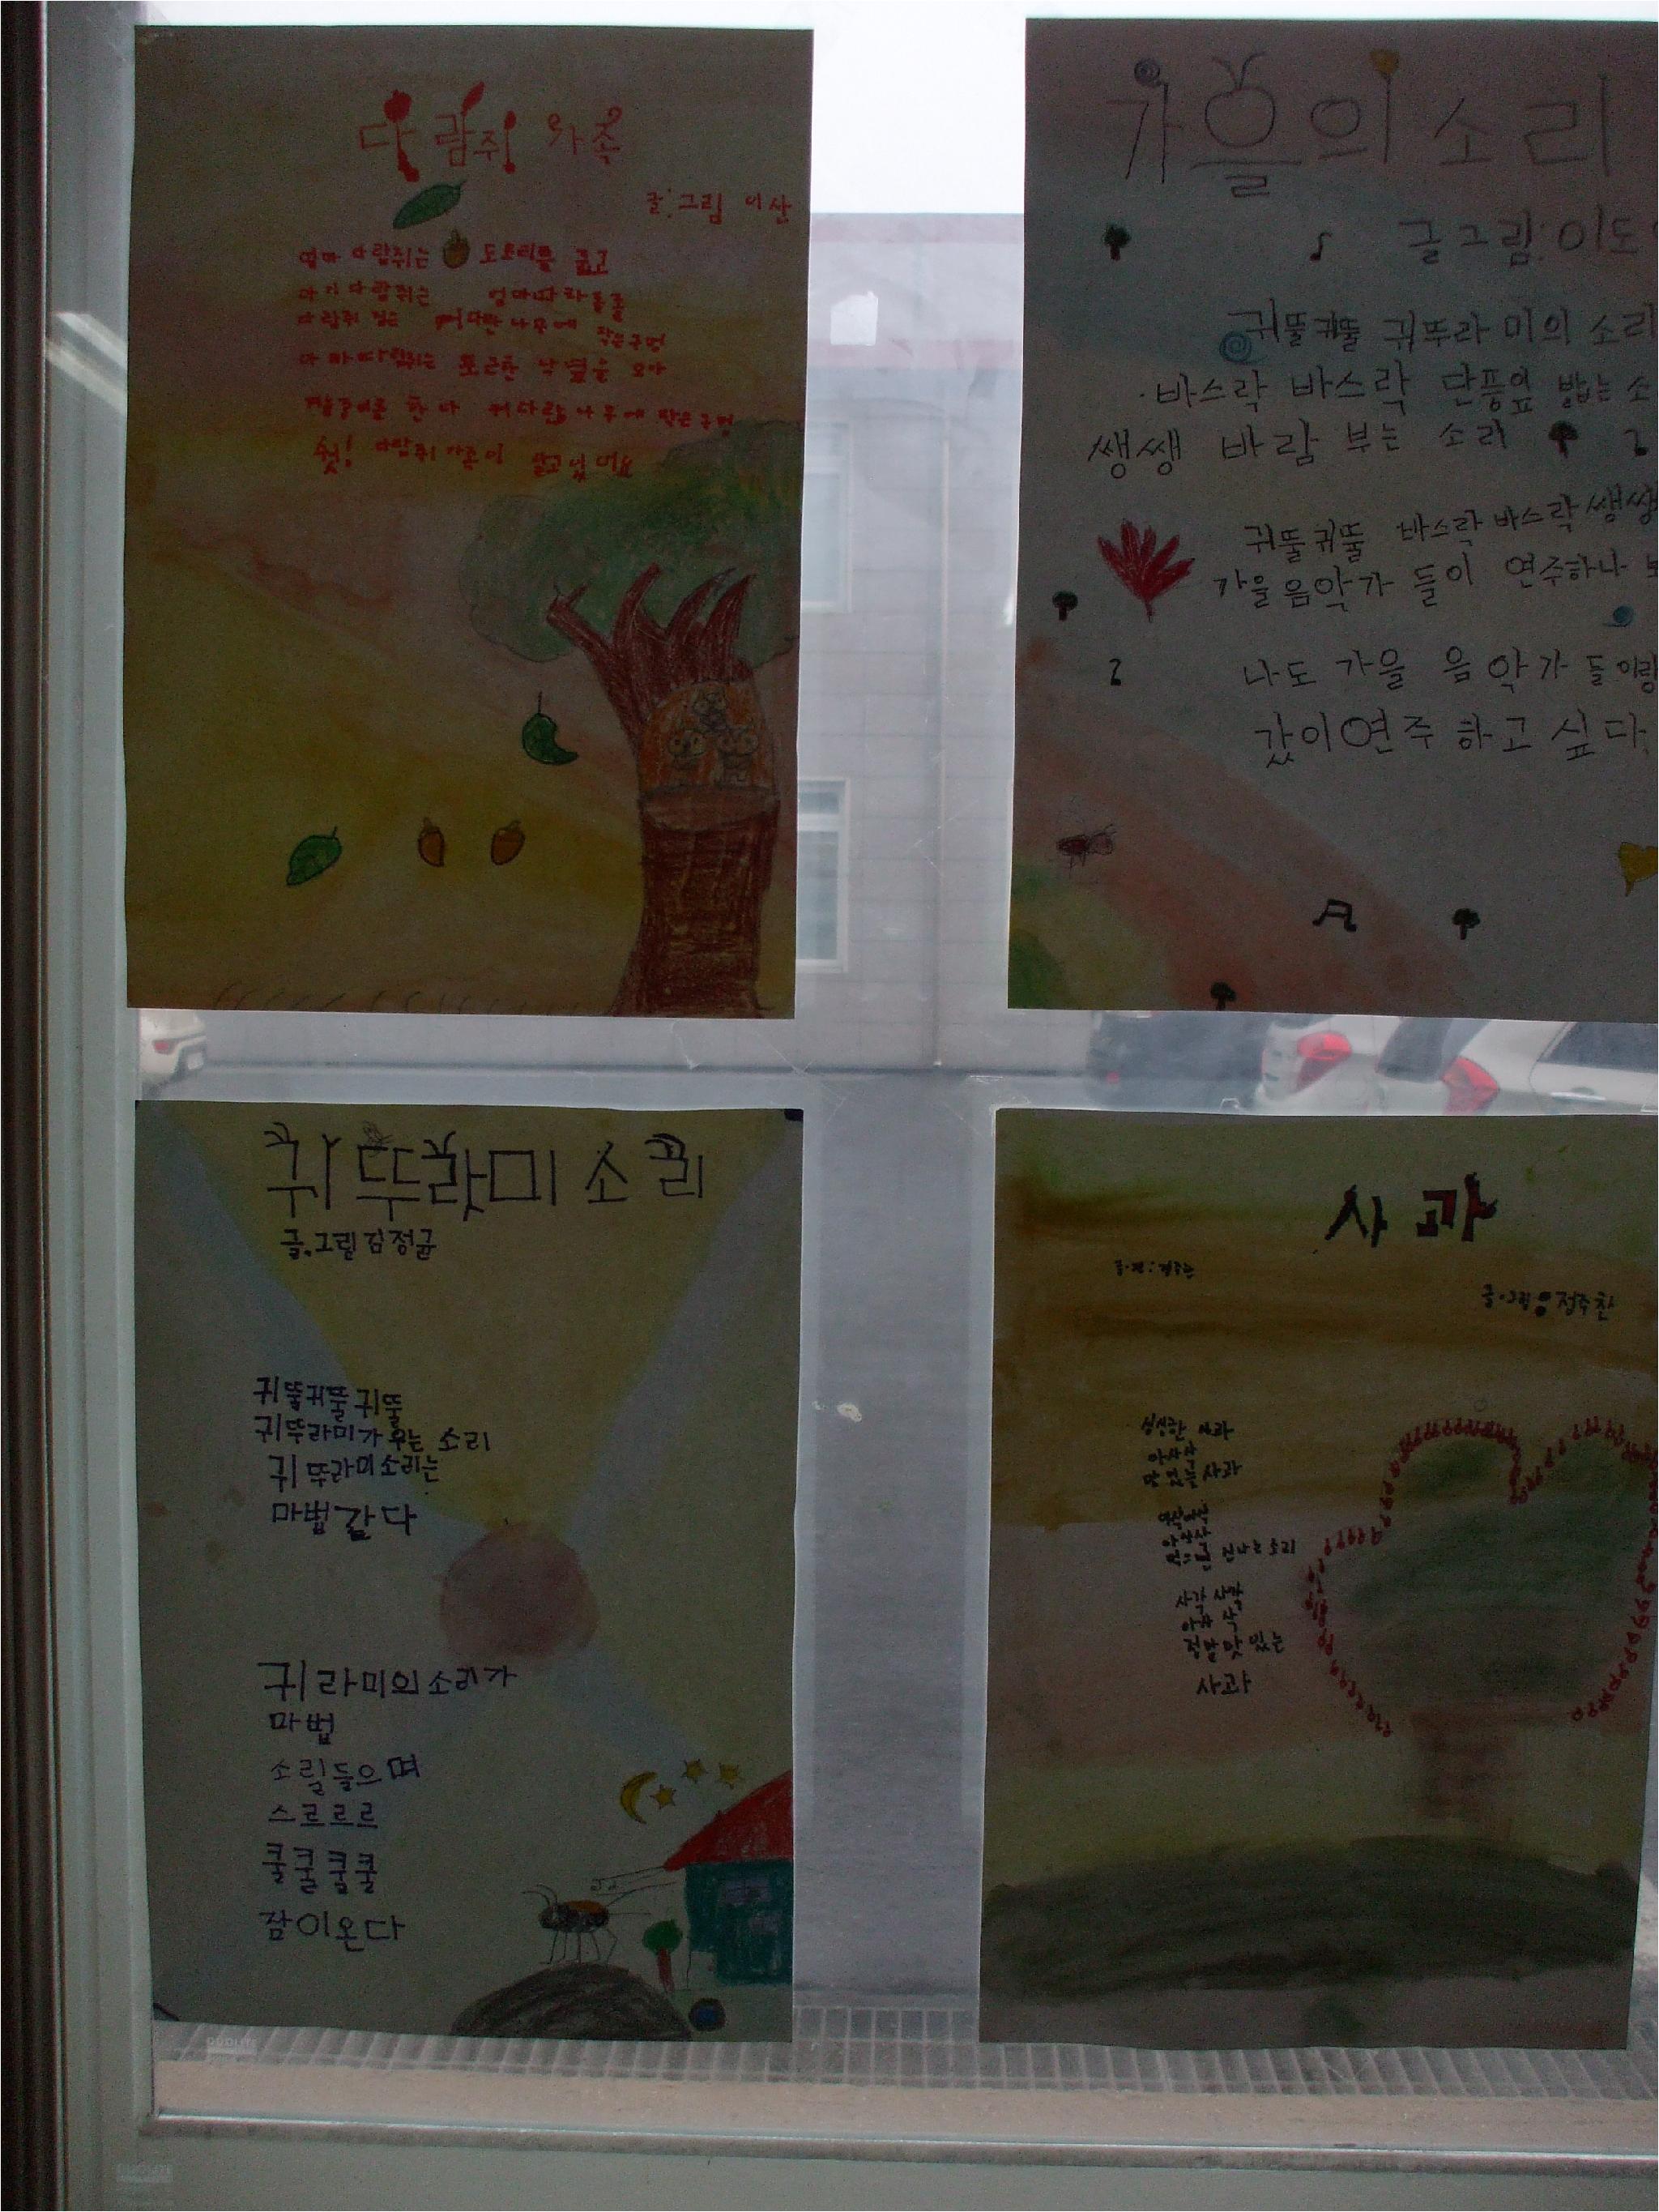 다람쥐 가족
글:그림 이산
엄마 다람쥐는 도토리를 줍고
아기 다람쥐는 엄마따라 졸졸
다람쥐 집은 커다란 나무에 작은구멍
아빠다람쥐는 포근한 낙엽을 모아
겨울준비를 한다 커다란 나무에 작은구멍
쉿! 다람쥐가족이 살고있어요
가을의 소리
글그림:이도
귀뚤귀뚤 귀뚜라미의 소리
바스락 바스락 단풍잎 밟는 소
쌩쌩 바람 부는 소리
귀뚤귀뚤 바스락바스락 쌩쌩
가을음악가들이 연주하나
나도 가을 음악가들이랑
갔이연주하고싶다
귀뚜라미소리
글.그림김정균
귀뚤귀뚤귀뚤
귀뚜라미가우는 소리
귀뚜라미소리는
마법같다
귀라미의소리가
마법
소릴들으며
스르르르
쿨쿨쿨쿨
잠이온다
사과
글·그림 정주찬
싱싱한 사과
아사삭
맛있는사과
신나는소리
사각사각
아사삭
정말맛있는
사과